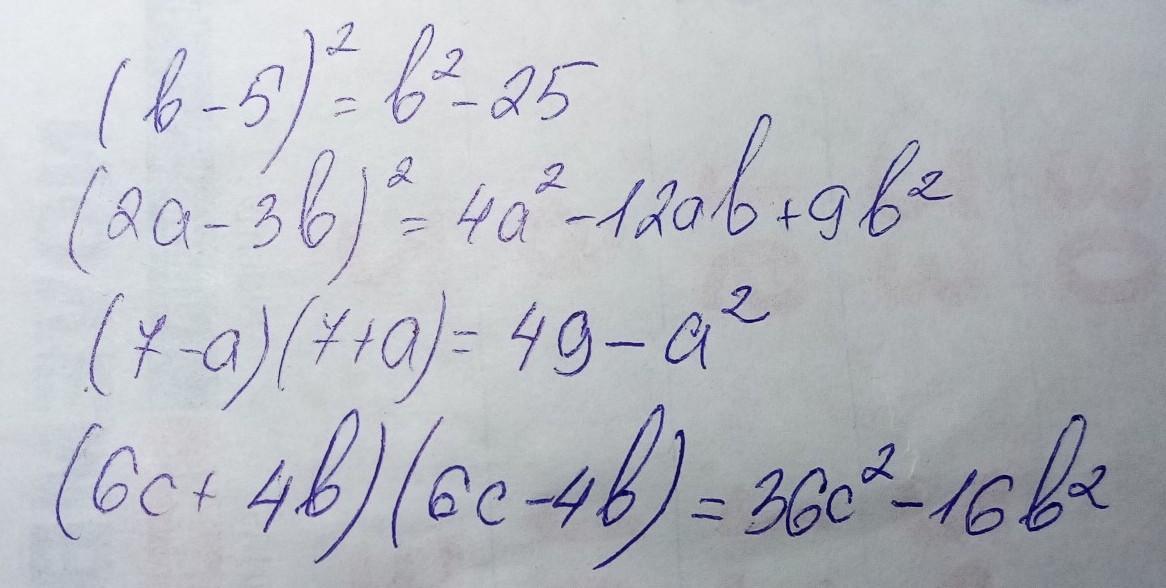 (b-5)² = b² - 25
(2a - 3b)² = 4a² - 12ab + 9b²
(7-a)(7+a) = 49 - a²
(6c + 4b)(6c - 4b) = 36c² - 16b²